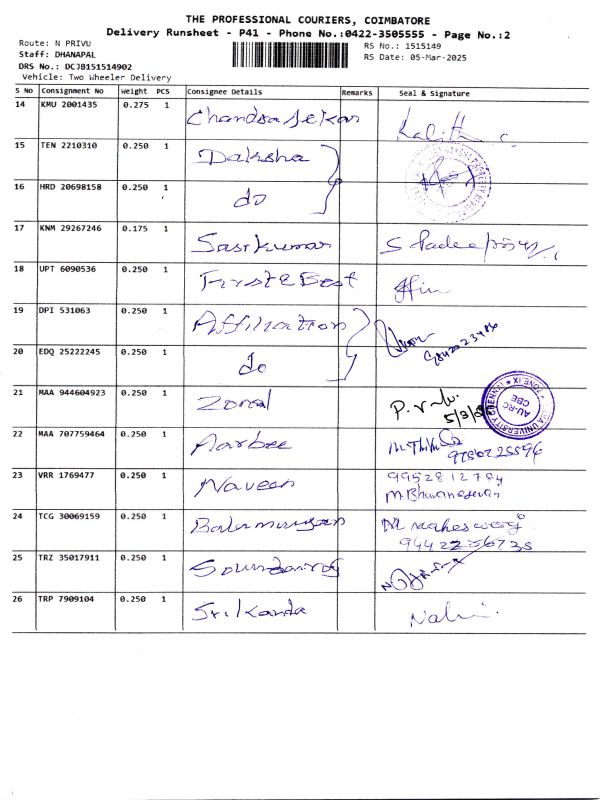 THE PROFESSIONAL COURIERS, COIMBATORE
Delivery Runsheet - P41 - Phone No.:0422-3505555 - Page No.:2
Route: N PRIVU
RS No.: 1515149
Staff: DHANAPAL
RS Date: 05-Mar-2025
DRS No.: DCJB151514902
Vehicle: Two Wheeler Delivery
S No Consignment No Weight PCS Consignee Details Remarks Seal & Signature
14 KMU 2001435 0.275 1 Chandrasekar
15 TEN 2210310 0.250 1 Daksha
16 HRD 20698158 0.250 1 do
17 KNM 29267246 0.175 1 Sasikumar
18 UPT 6090536 0.250 1 First & Best
19 DPI 531063 0.250 1 Affiliation
9842023486
20 EDQ 25222245 0.250 1 do
21 MAA 944604923 0.250 1 Zonal
AU-RC
CBE
22 MAA 707759464 0.250 1 Aarbee
23 VRR 1769477 0.250 1 Naveen 9952812784
M.Bhuvaneswari
24 TCG 30069159 0.250 1 Balamurugan M maheswari
9442256735
25 TRZ 35017911 0.250 1
26 TRP 7909104 0.250 1 Srikanda